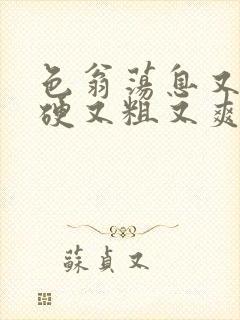 色翁荡息又
硬又粗又爽
蘇貞又